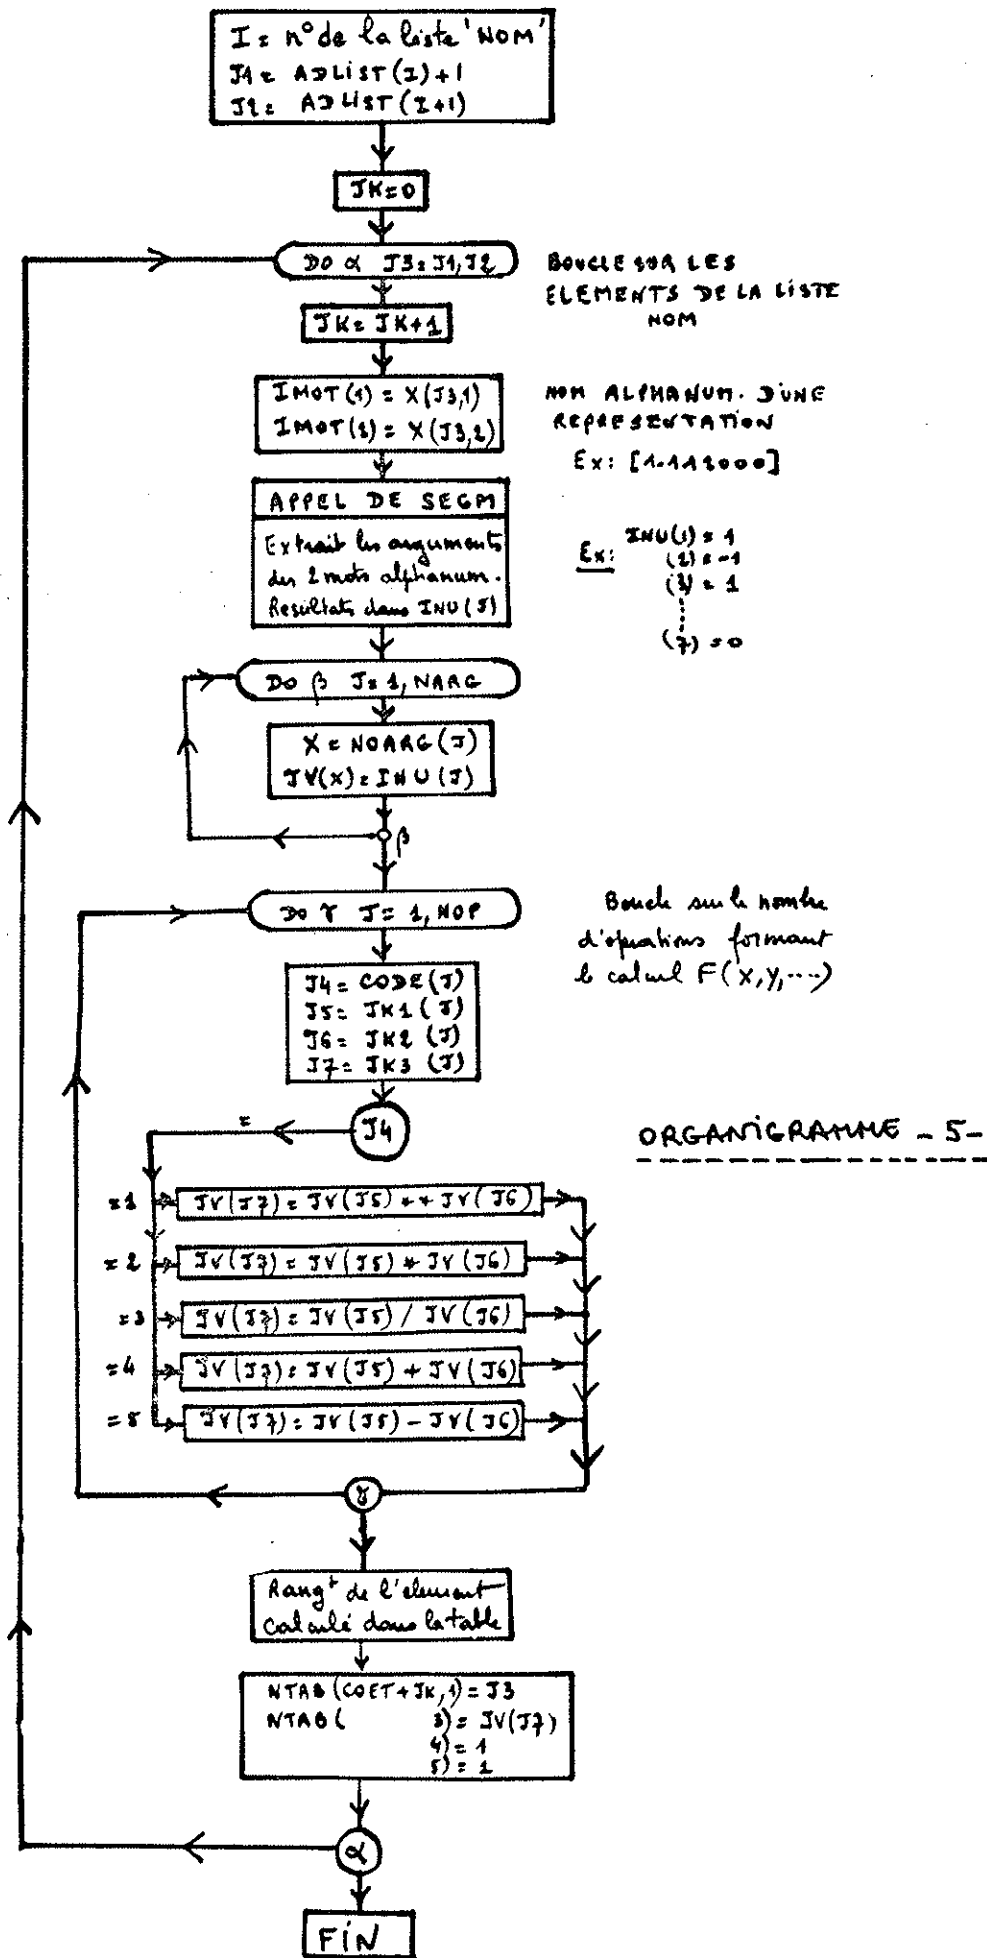 I = n° de la liste 'NOM'
J1 = ADLIST(I)+1
J2 = ADLIST(I+1)
JK=0
DO α J3=J1,J2
BOUCLE SUR LES
ELEMENTS DE LA LISTE
NOM
JK= JK+1
IMOT(1) = X(J3,1)
IMOT(2) = X(J3,2)
NOM ALPHANUM. D'UNE
REPRESENTATION
Ex: [1-112000]
APPEL DE SEGM
Extrait les arguments
des 2 mots alphanum.
Resultats dans INU(J)
Ex: INU(1) = 1
(2) = -1
(3) = 1
(7) = 0
DO β J= 1, NARG
X = NOARG(J)
JV(X) = INU(J)
β
DO γ J= 1, NOP
Boucle sur le nombre
d'opérations formant
le calcul F(X,Y,....)
J4= CODE(J)
J5= JK1(J)
J6= JK2(J)
J7= JK3(J)
=
J4
ORGANIGRAMME - 5-
=1 JV(J7) = JV(J5) ** JV(J6)
=2 JV(J7) = JV(J5) * JV(J6)
=3 JV(J7) = JV(J5) / JV(J6)
=4 JV(J7) = JV(J5) + JV(J6)
=5 JV(J7) = JV(J5) - JV(J6)
γ
Rangt de l'element
calculé dans la table
NTAB(COET+JK,1)=J3
NTAB( 3)= JV(J7)
4)= 1
5)= 1
α
FIN